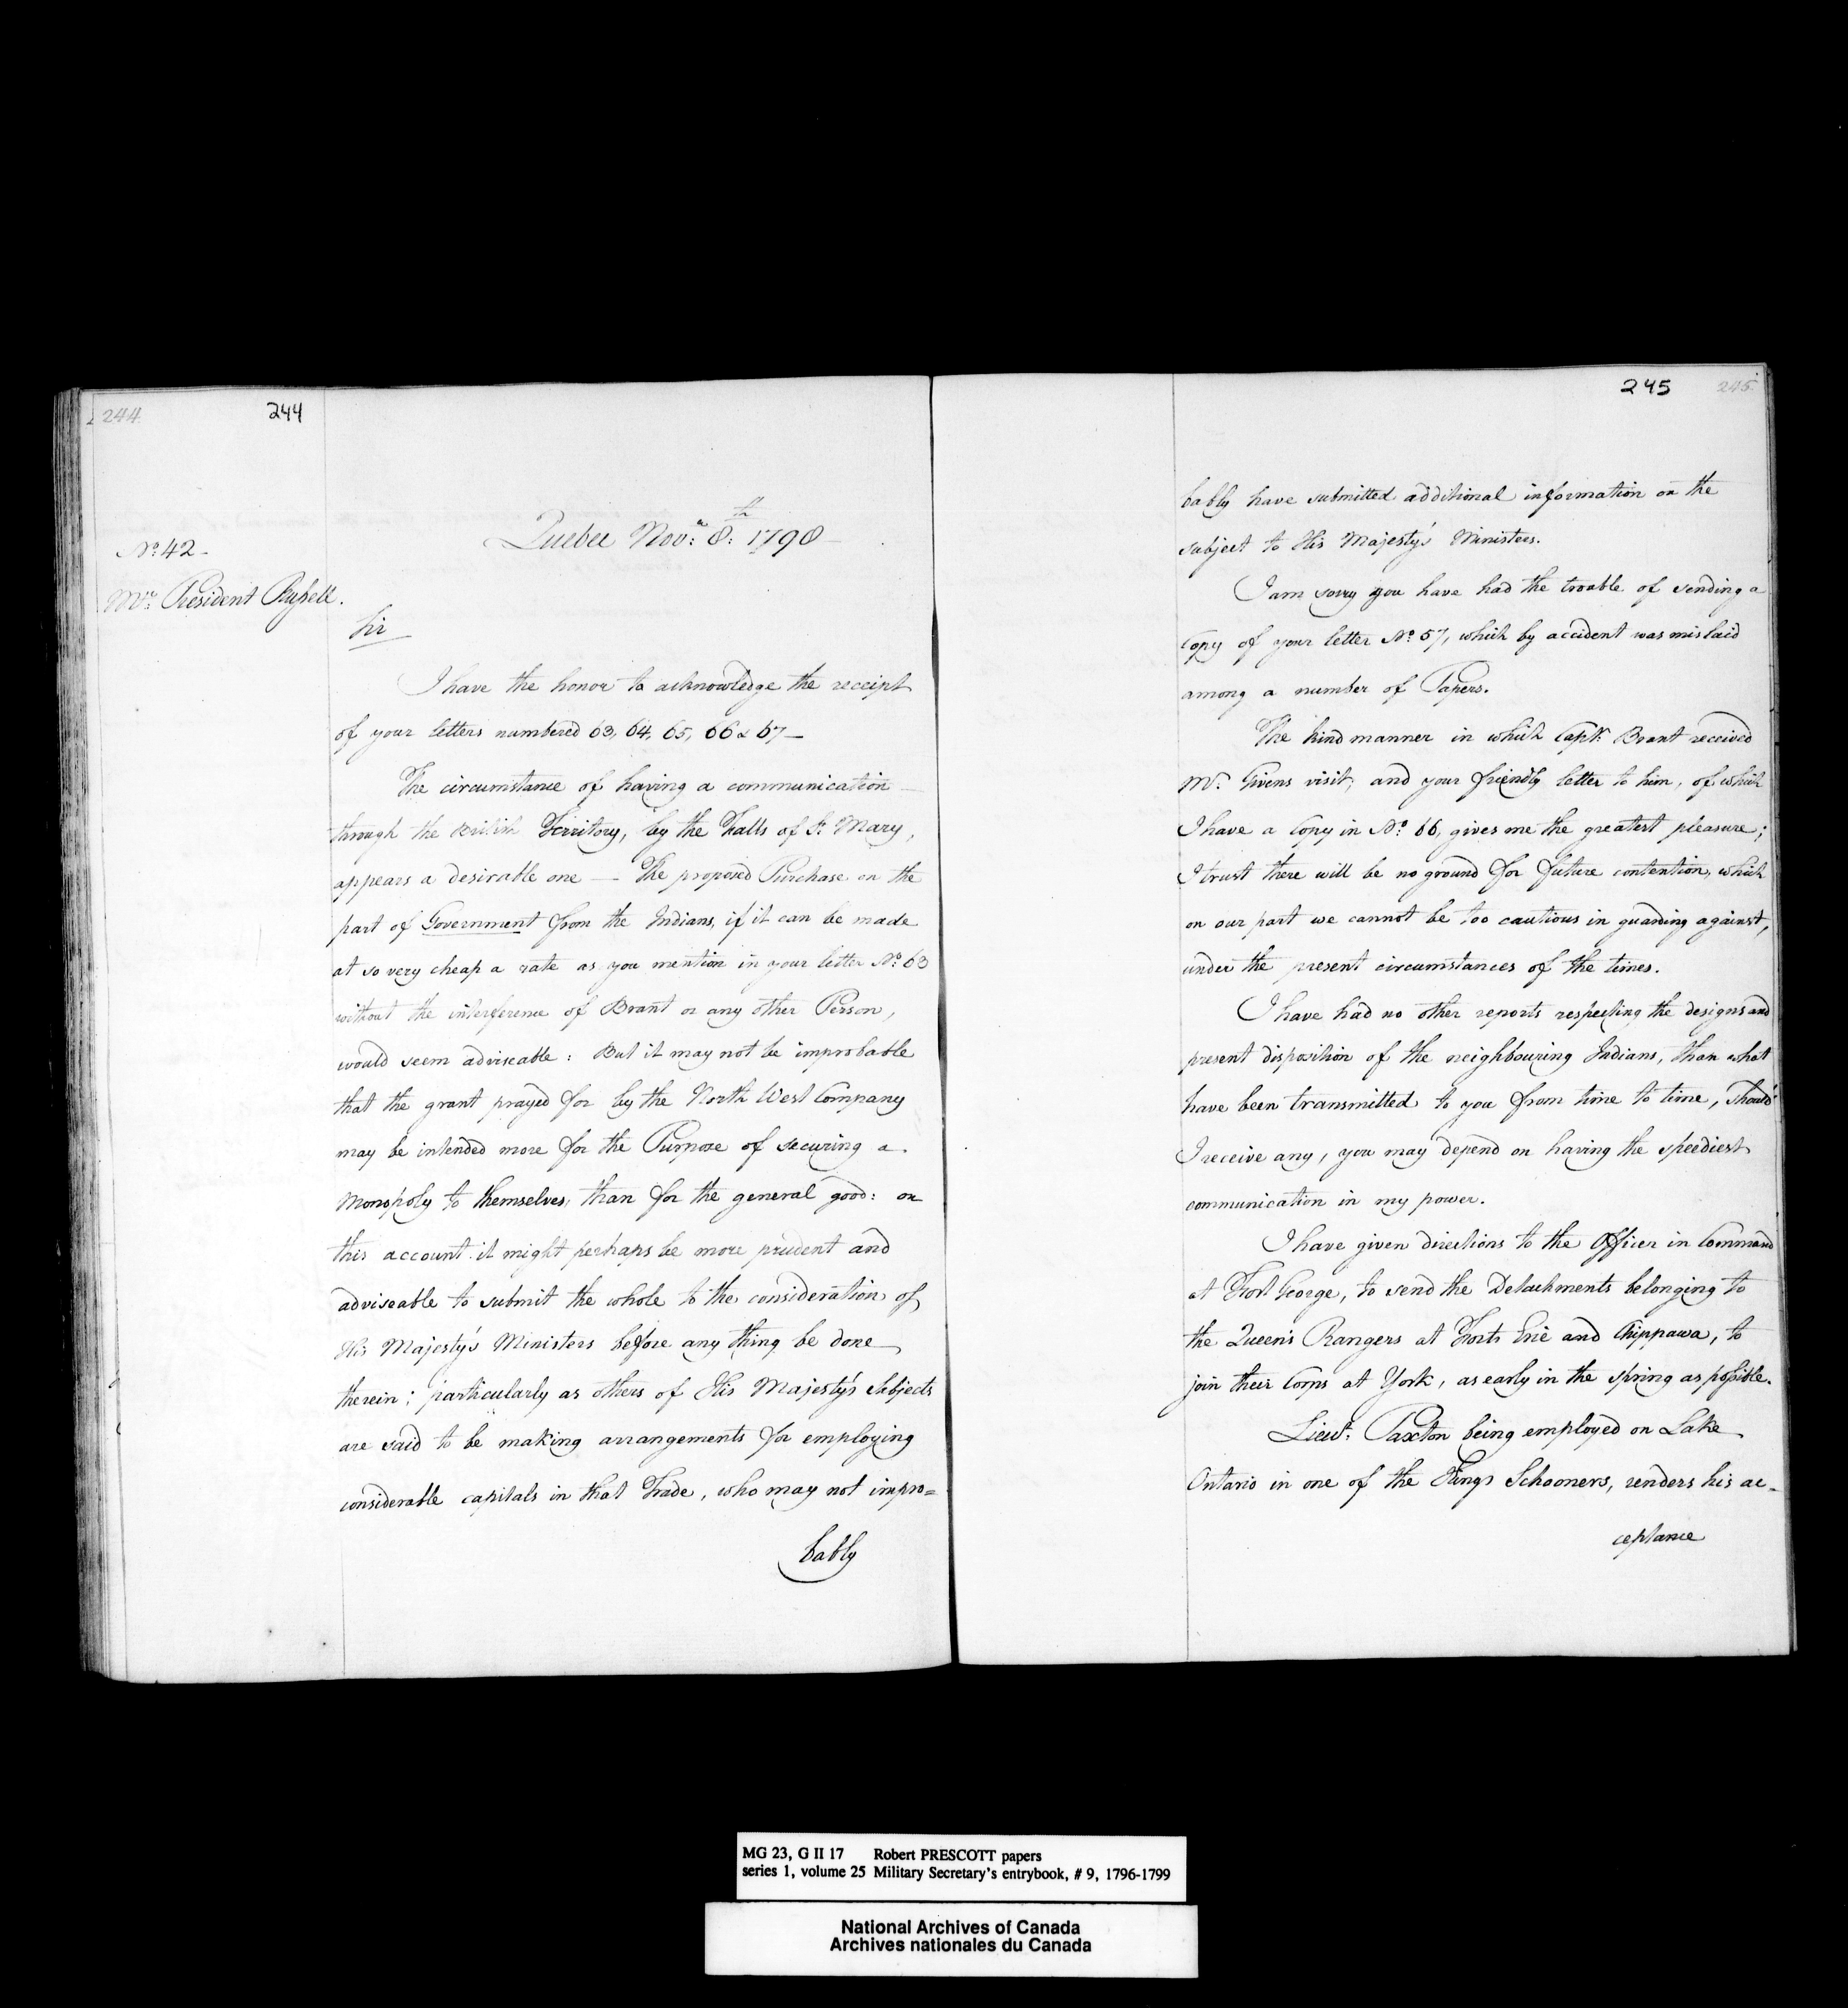 244 244
Quebec Novr. 8th: 1798
No. 42
Mr. President Russell.
Sir
I have the honor to acknowledge the receipt
of your letters numbered 63, 64, 65, 66 & 67 —
The circumstance of having a communication
through the British Territory, by the Falls of St. Mary,
appears a desirable one — The proposed Purchase on the
part of Government from the Indians, if it can be made
at so very cheap a rate as you mention in your letter No. 63
without the interference of Brant or any other Person,
would seem adviseable: But it may not be improbable
that the grant prayed for by the North West Company
may be intended more for the Purpose of securing a
Monopoly to themselves, than for the general good: on
this account it might perhaps be more prudent and
adviseable to submit the whole to the consideration of
His Majesty's Ministers before any thing be done
therein; particularly as others of His Majesty's Subjects
are said to be making arrangements for employing
considerable capitals in that Trade, who may not impro=
bably
245 245
bably have submitted additional information on the
subject to His Majesty's Ministers.
I am sorry you have had the trouble of sending a
Copy of your letter No. 57, which by accident was mislaid
among a number of Papers.
The kind manner in which Capt. Brant received
Mr. Givens visit, and your friendly letter to him, of which
I have a Copy in No. 66, gives me the greatest pleasure;
I trust there will be no ground for future contention, which
on our part we cannot be too cautious in guarding against,
under the present circumstances of the times.
I have had no other reports respecting the designs and
present disposition of the neighbouring Indians, than what
have been transmitted to you from time to time, should
I receive any, you may depend on having the speediest
communication in my power.
I have given directions to the Officer in Command
at Fort George, to send the Detachments belonging to
the Queen's Rangers at Forts Erie and Chippawa, to
join their Corps at York, as early in the spring as possible.
Lieut. Paxton being employed on Lake
Ontario in one of the Kings Schooners, renders his ac=
ceptance
MG 23, G II 17 Robert PRESCOTT papers
series 1, volume 25 Military Secretary's entrybook, # 9, 1796-1799
National Archives of Canada
Archives nationales du Canada